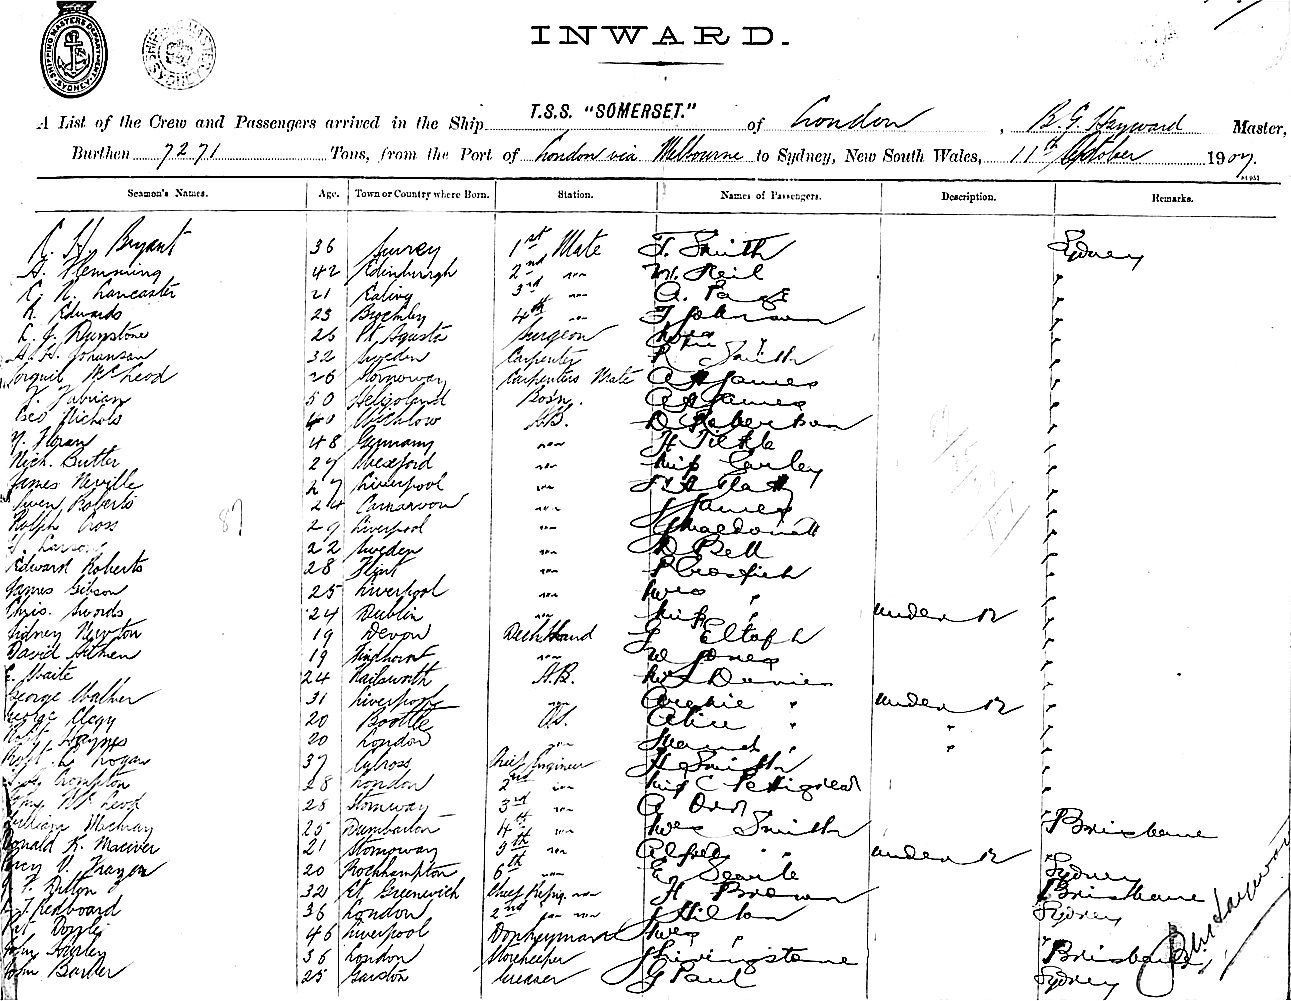 SHIPPING MASTERS DEPARTMENT SYDNEY
INWARD.
A List of the Crew and Passengers arrived in the Ship T.S.S. "SOMERSET." of London, B.G. Hayward Master,
Burthen 7271 Tons, from the Port of London via Melbourne to Sydney, New South Wales, 11th October 1907.
Seamen's Names. Age. Town or Country where Born. Station. Names of Passengers. Description. Remarks.
Bryant 36 Surrey 1st Mate F. Smith Sydney
Flemming 42 Edinburgh 2nd " W. Neil "
Lancaster 21 Ealing 3rd " A. Page "
R. Edwards 23 Brockley 4th " F Johnson "
Dunstone 26 Pt Agusta Surgeon Mrs "
Johansan 32 Sweden Carpenter R Smith "
Torquil McLeod 26 Stornoway Carpenters Mate A James "
Fabrian 50 Heligoland Bosn. A James "
Geo Nichols 40 Wicklow A.B. D Robertson "
Horan 48 Germany " H Tickle "
Nich. Butler 27 Wexford " Miss Earley "
James Neville 27 Liverpool " "
Owen Roberts 24 Carnarvon " J James "
Ralph Cross 87 29 Liverpool " J Macdonald "
22 Sweden " D Bell "
Edward Roberts 28 Flint " "
James Gibson 25 Liverpool " Mrs " "
Chris. Swords 24 Dublin " Miss " under 12 "
Sidney Newton 19 Devon Deck Hand G "
David Aitken 19 Kinghorn " W Jones "
Waite 24 Nailsworth A.B. Mrs Davies "
George Walker 31 Liverpool " Archie " under 12 "
George Clegy 20 Bootle O.S. Alice " " "
Haynes 20 London " " " "
Robt. L. Logan 37 Culross Chief Engineer H Smith "
Crompton 28 London 2nd " Miss C Pettigrew "
McLeod 28 Stornoway 3rd " "
William Mechray 25 Dumbarton 4th " Mrs Smith " Brisbane
Donald K. Maciver 21 Stornoway 5th " Alfred " under 12 "
Percy V. Frazer 20 Rockhampton 6th " E Searle Sydney
Dillon 32 Et Greenwich Chief Refrig. " H Brown Brisbane
Redboard 36 London 2nd " " J Hilton Sydney
Doyle 46 Liverpool Donkeyman Mrs " "
John Sorley 36 London Storekeeper J Livingstone Brisbane
John Barber 25 Garston Greaser G Paul Sydney